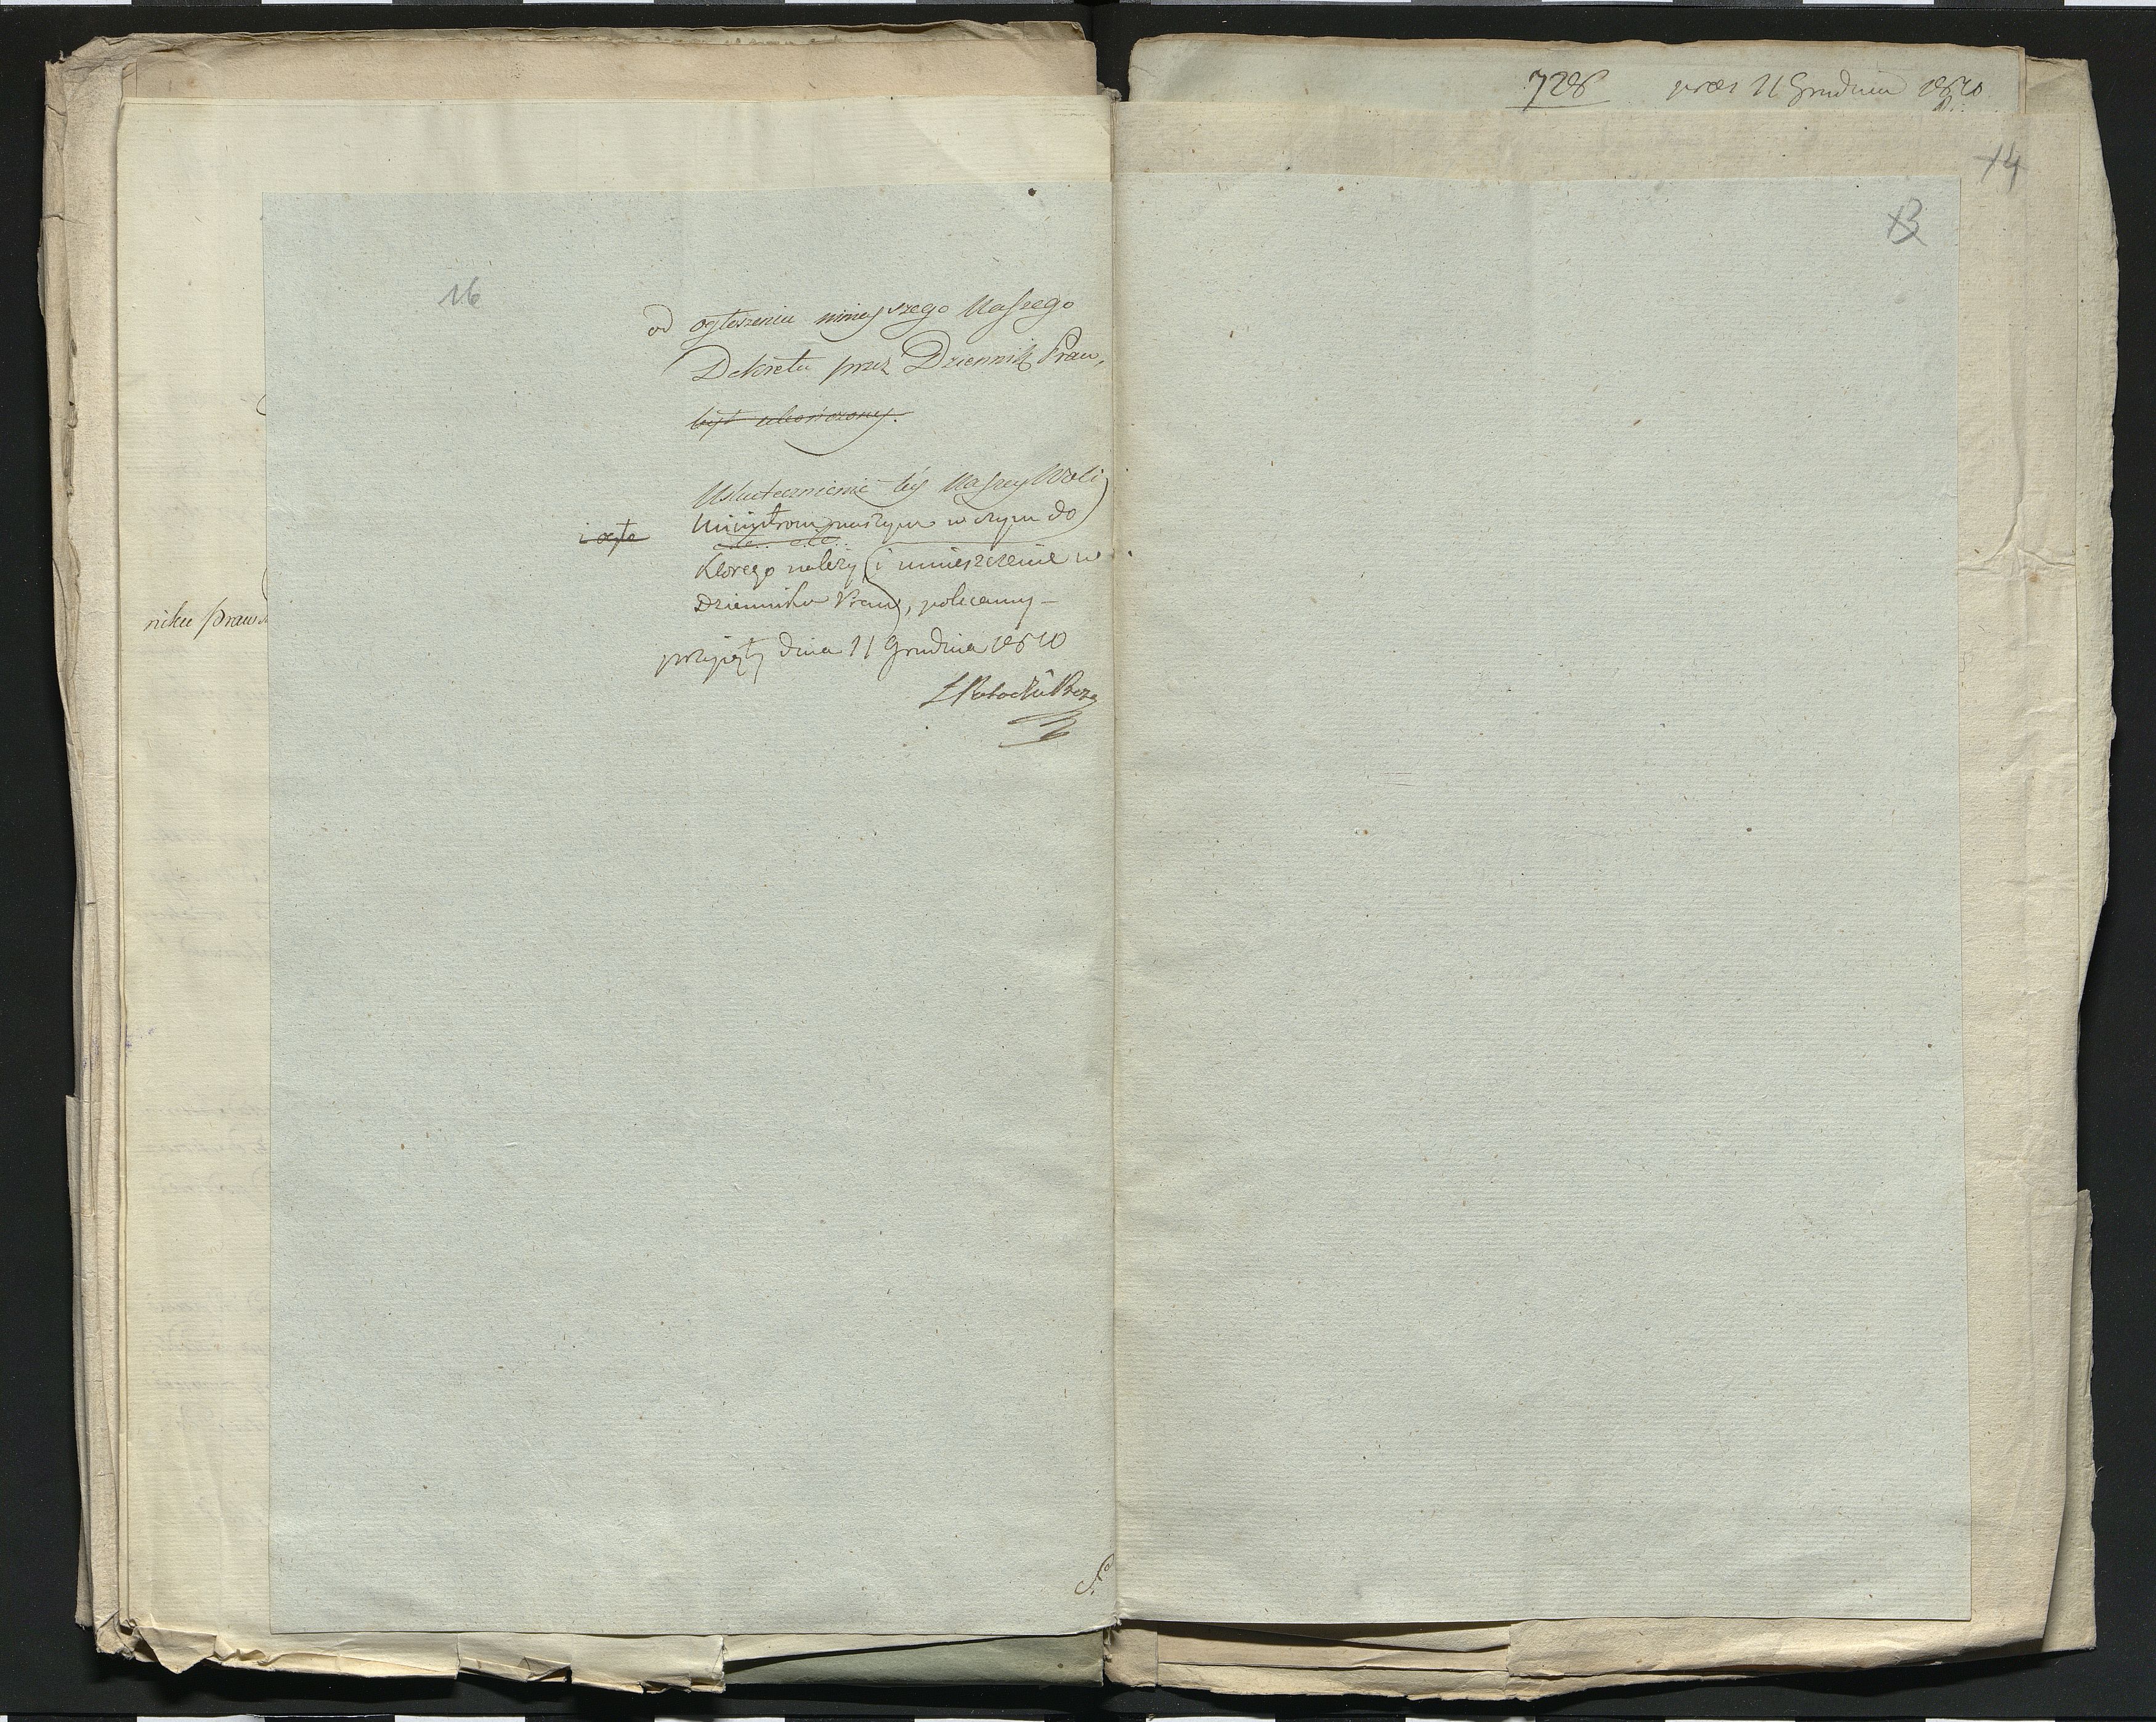 728 prez 11 Grudnia 1810
14
13
16
od ogłoszenia ninieyszego Naszego
Dekretu przez Dziennik Praw,
być ukończony.
Uskutecznienie tey Naszey Woli
Ministrom naszym w czym do
i ogło
którego należy (i umieszczenie w
Dzienniku Praw), polecamy –
przyięty dnia 11 Grudnia 1810
niku Praw
S Potocki Prez